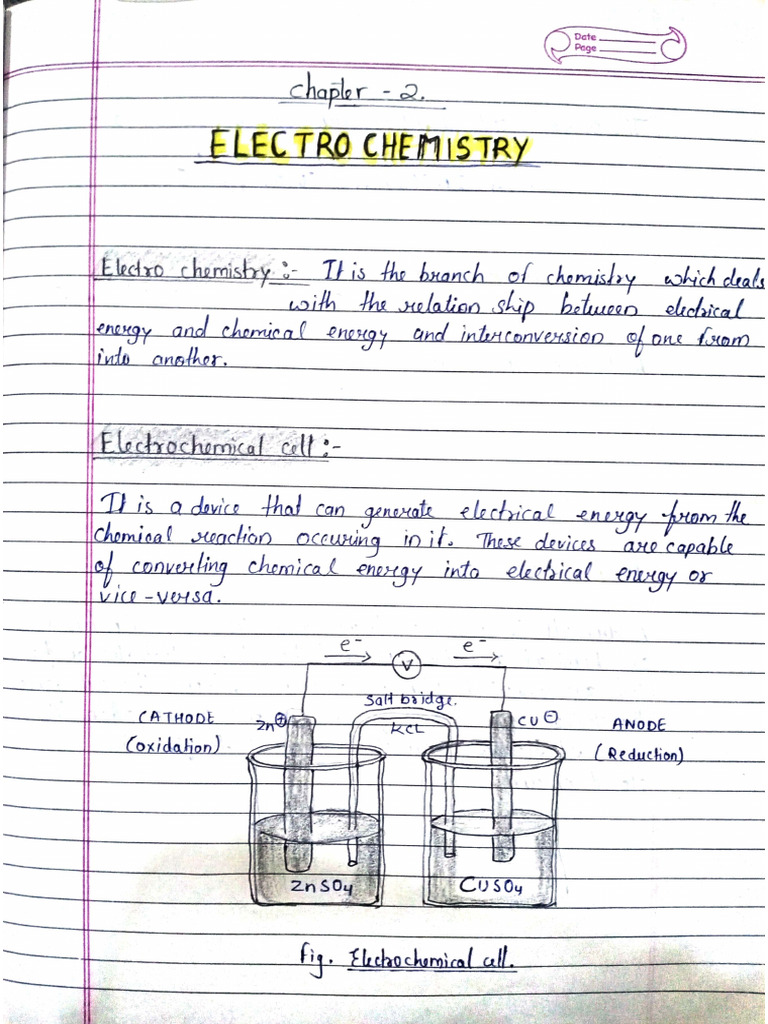 Date
Page
Chapter - 2.
ELECTRO CHEMISTRY
Electro chemistry :- It is the branch of chemistry which deals
with the relation ship between electrical
energy and chemical energy and interconversion of one from
into another.
Electrochemical cell :-
It is a device that can generate electrical energy from the
chemical reaction occuring in it. These devices are capable
of converting chemical energy into electrical energy or
vice-versa.
e⁻ e⁻
V
Salt bridge.
CATHODE Zn⊕ KCL CU⊖ ANODE
(oxidation) (Reduction)
ZnSO₄ CUSO₄
Fig. Electrochemical cell.